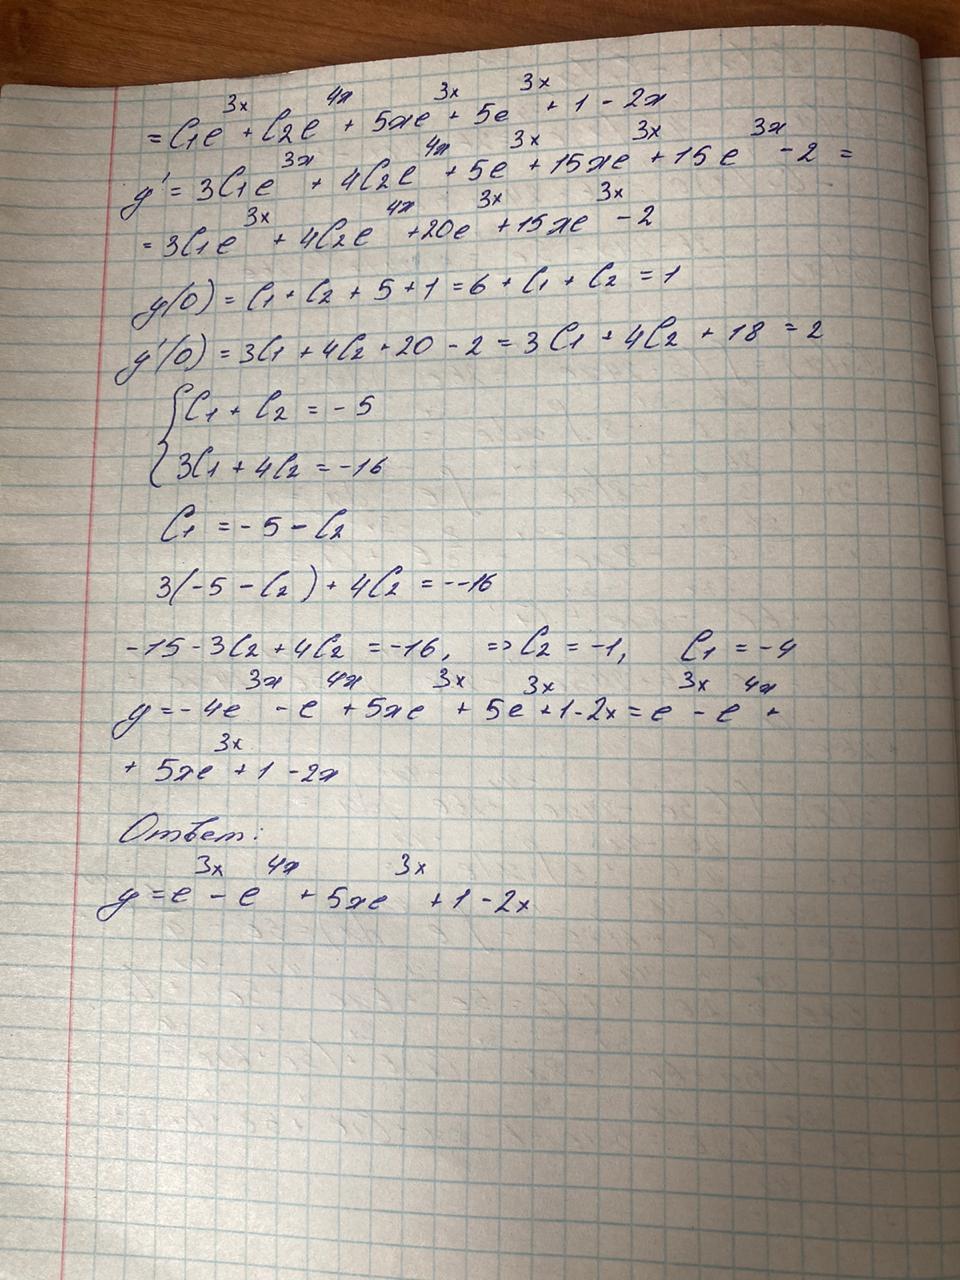 = C₁e³ˣ + C₂e⁴ˣ + 5xe³ˣ + 5e³ˣ + 1 - 2x
y' = 3C₁e³ˣ + 4C₂e⁴ˣ + 5e³ˣ + 15xe³ˣ + 15e³ˣ - 2 =
= 3C₁e³ˣ + 4C₂e⁴ˣ + 20e³ˣ + 15xe³ˣ - 2
y(0) = C₁ + C₂ + 5 + 1 = 6 + C₁ + C₂ = 1
y'(0) = 3C₁ + 4C₂ + 20 - 2 = 3C₁ + 4C₂ + 18 = 2
{ C₁ + C₂ = -5
3C₁ + 4C₂ = -16
C₁ = -5 - C₂
3(-5 - C₂) + 4C₂ = --16
-15 - 3C₂ + 4C₂ = -16, => C₂ = -1, C₁ = -4
y = -4e³ˣ - e⁴ˣ + 5xe³ˣ + 5e³ˣ + 1 - 2x = e³ˣ - e⁴ˣ +
+ 5xe³ˣ + 1 - 2x
Ответ:
y = e³ˣ - e⁴ˣ + 5xe³ˣ + 1 - 2x